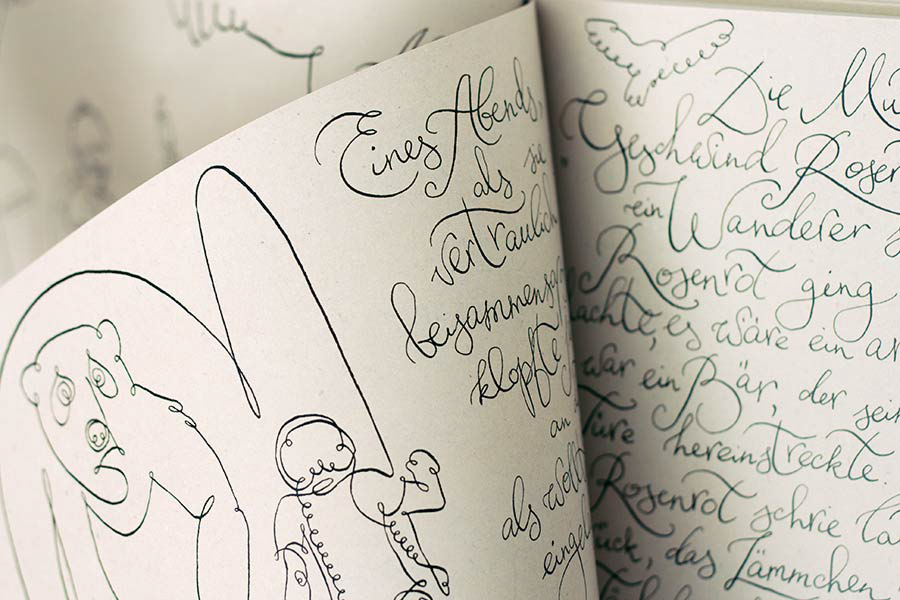 Eines Abends,
als sie
vertraulich
beisammens
klopfte
an
als woll
einge
Die Mu
"Geschwind Rosen
ein Wanderer s
Rosenrot ging
achte, es wäre ein ar
war ein Bär, der sein
Türe hereinstreckte.
Rosenrot schrie la
ück, das Lämmchen